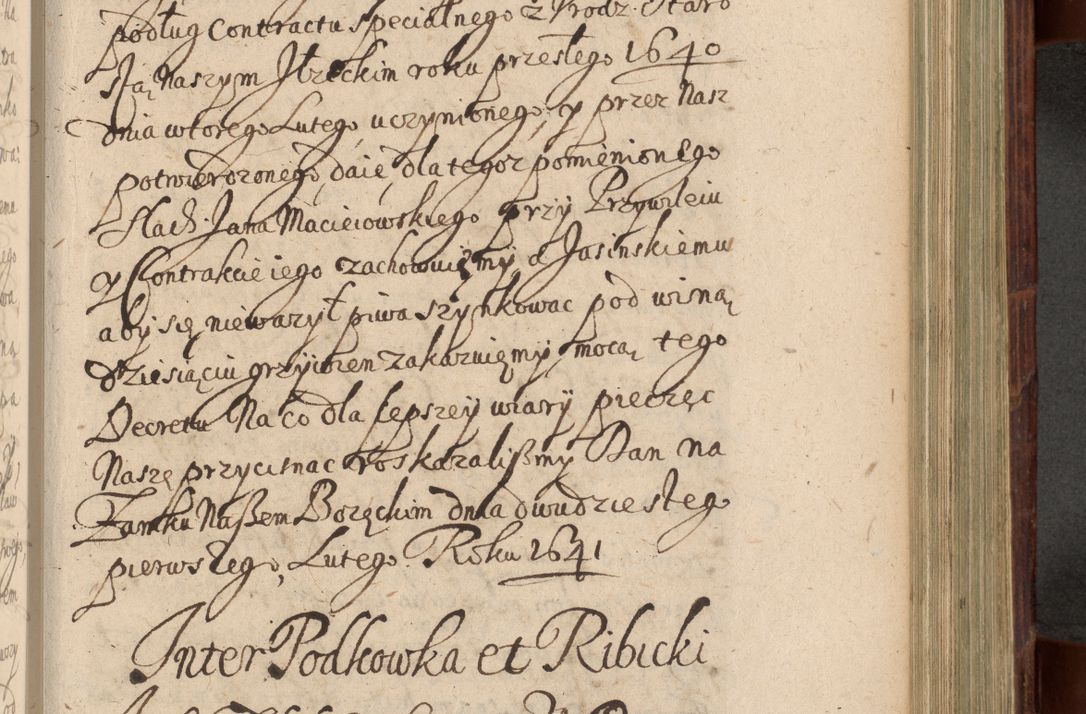 podług Contractu specialnego z Urodz: Staro
stą naszym Jłzeckim roku przesłego 1640
dnia wtorego Lutego, uczynionego, y przez Nasz
potwierdzonego, daie, dla tegoz pomienionego
Slach: Jana Macieiowskiego przÿ Przÿwileiu
y Contrakcie iego zachowuięmy a Jasinskiemu
abÿ się niewarzÿł piwa szynkowac pod winą
dziesiąciu grzÿwien zakazuięmÿ mocą tego
Decretu Na co dla lepszeÿ wiarÿ pieczęc
Naszę przycisnac roskazalißmÿ Dan na
Zamku Naßem Bozęckim dnia dwudziestego
pierwszego, Lutego Roku 1641
Inter Podkowka et Ribicki